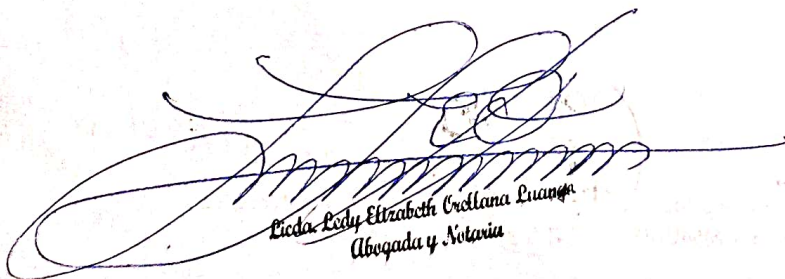 Licda. Ledy Elizabeth Orellana Luango
Abogada y Notaria